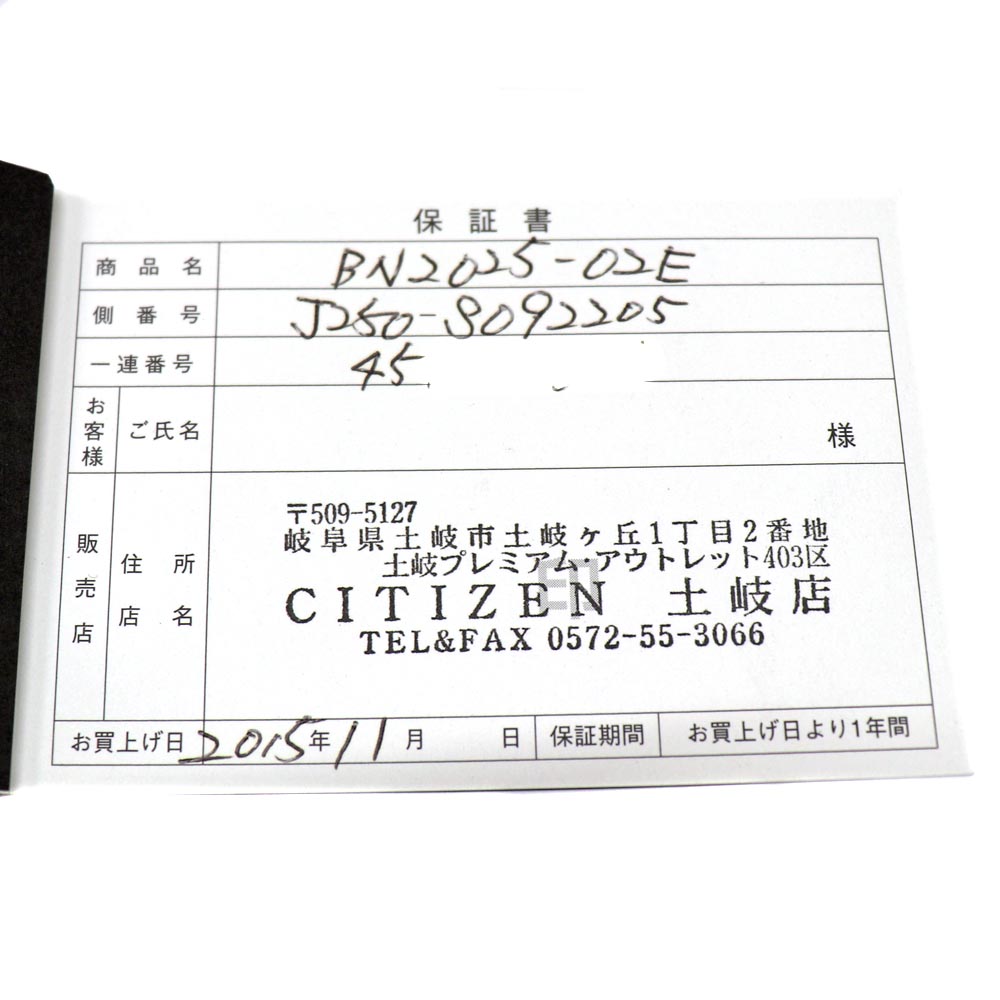 保証書
商品名 BN2025-02E
側番号 J250-S092205
一連番号 45
お客様 ご氏名 様
販売店 住所 店名
〒509-5127
岐阜県土岐市土岐ヶ丘1丁目2番地
土岐プレミアム・アウトレット403区
印
CITIZEN 土岐店
TEL&FAX 0572-55-3066
お買上げ日 2015年11月 日 保証期間 お買上げ日より1年間